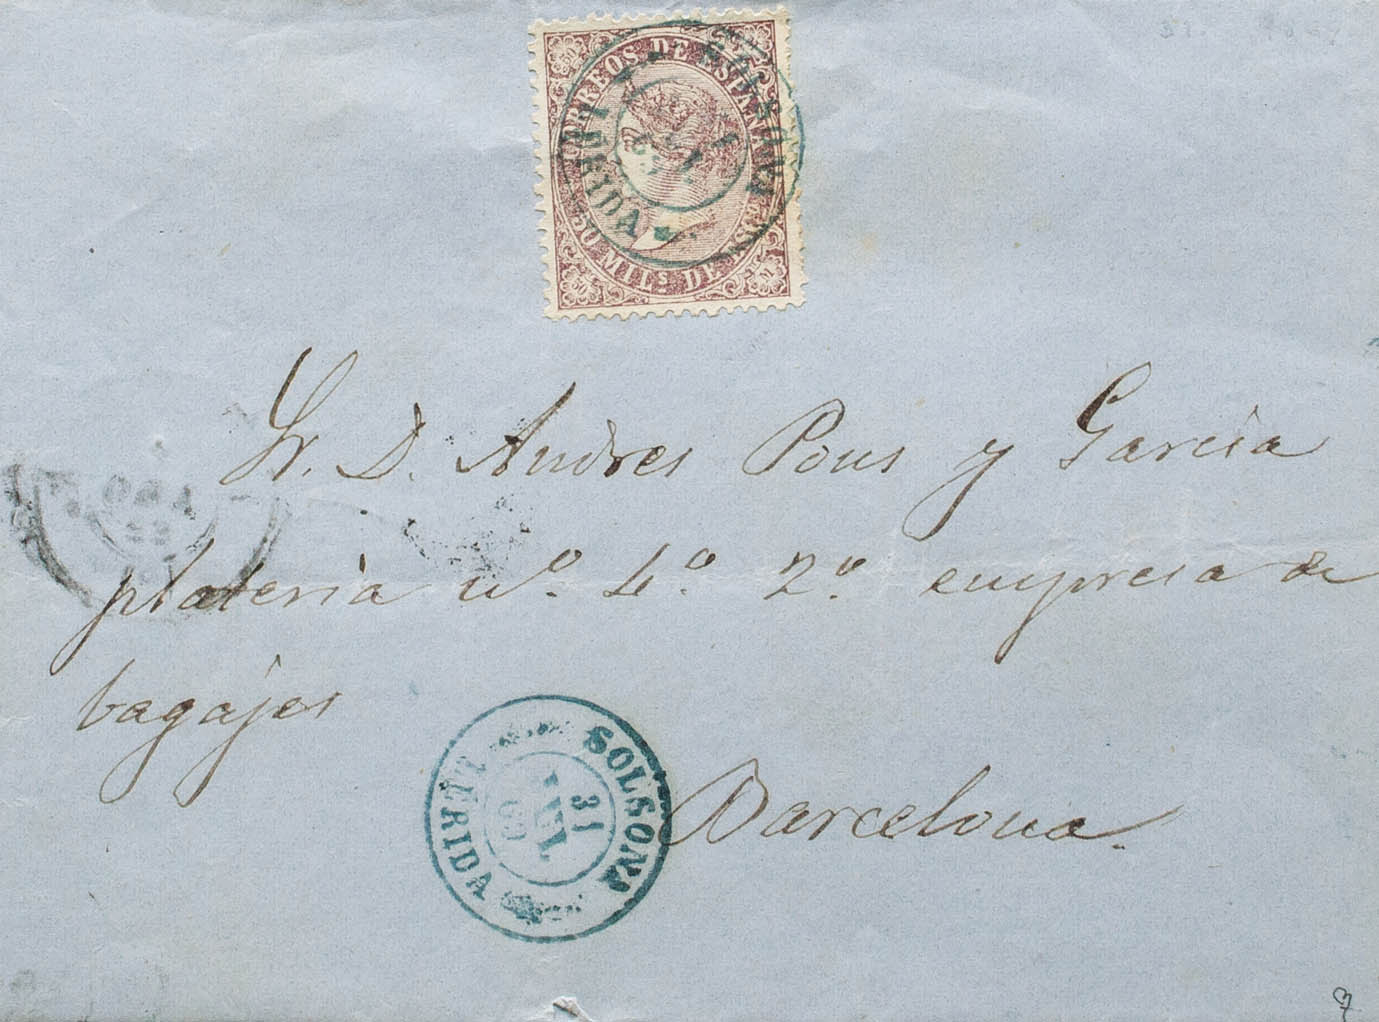 CORREOS DE ESPAÑA
50 MIL.s DE
SOLSONA
LERIDA
Sr. D. Andres Pons y Garcia
plateria nº. 4º. 2º. empresa de
bagajes
Barcelona.
SOLSONA
31
JUL
69
LERIDA